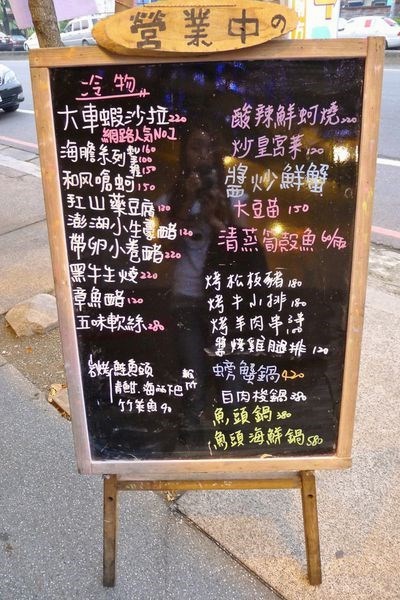 營業中の
冷物
大車蝦沙拉220
網路人氣NO.1
海膽系列 160
100
150
和风嗆蚵150
紅山藥豆腐130
澎湖小生蠔醋120
帶卵小卷醋220
黑牛生燒220
章魚醋120
五味軟絲280
岩烤鮭魚頭
青甘.海鱺下巴
竹筴魚90
酸辣鮮蚵燒220
炒皇宮菜120
醬炒鮮蟹
大豆苗150
清蒸筍殼魚
烤松板豬180
烤牛小排180
烤羊肉串
醬烤雞腿排120
螃蟹鍋420
白肉棧鍋380
魚頭鍋380
魚頭海鮮鍋580